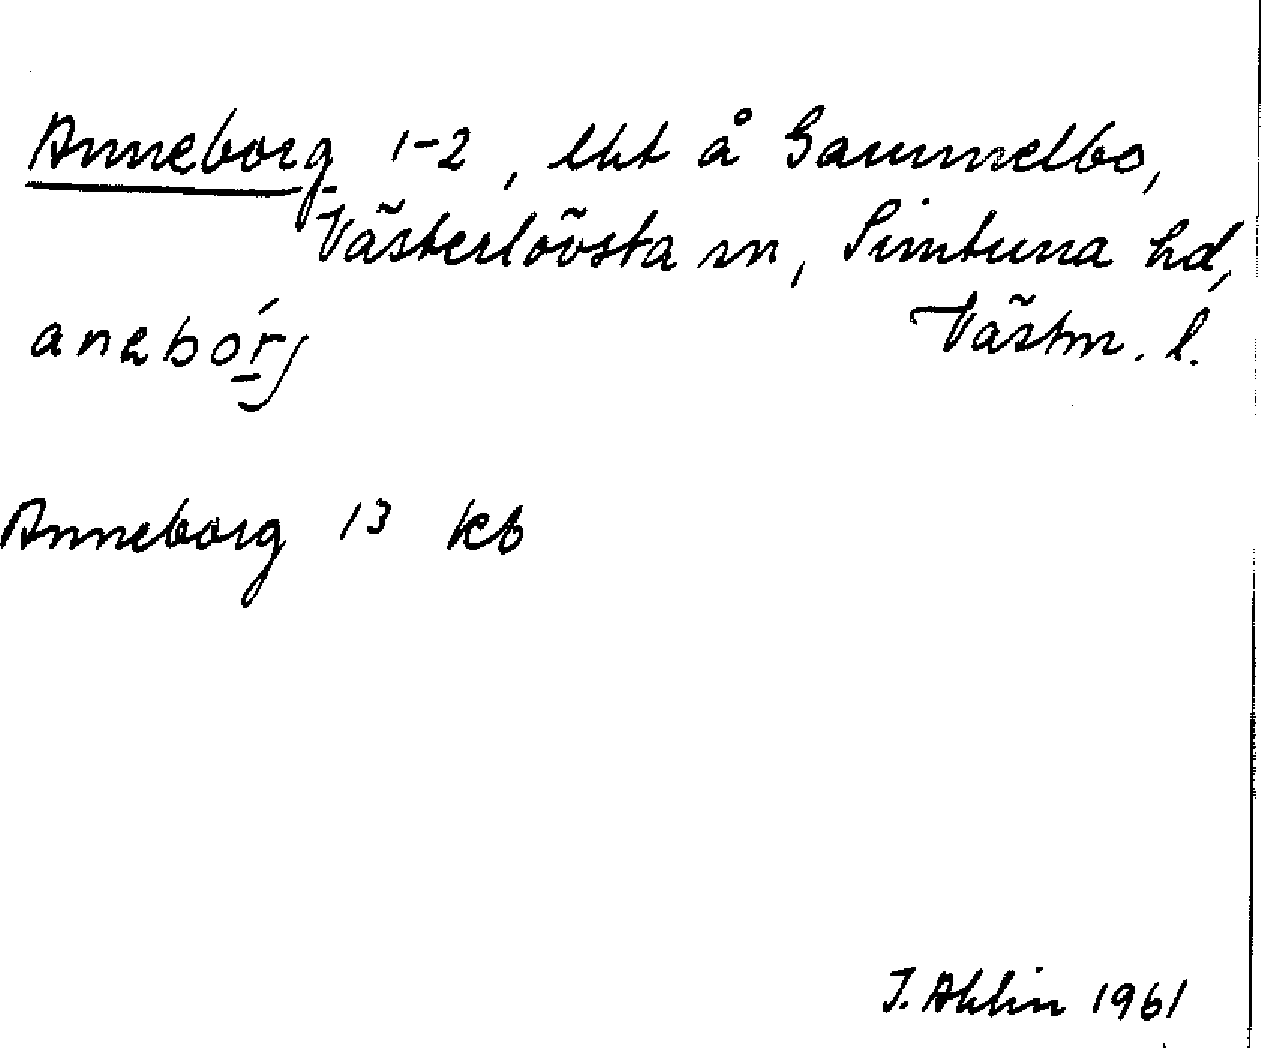 Anneborg 1-2, lht å Gammelbo,
Västerlövsta sn, Simtuna hd,
Västm. l.
anebórj
Anneborg 13 kb
J. Ahlin 1961